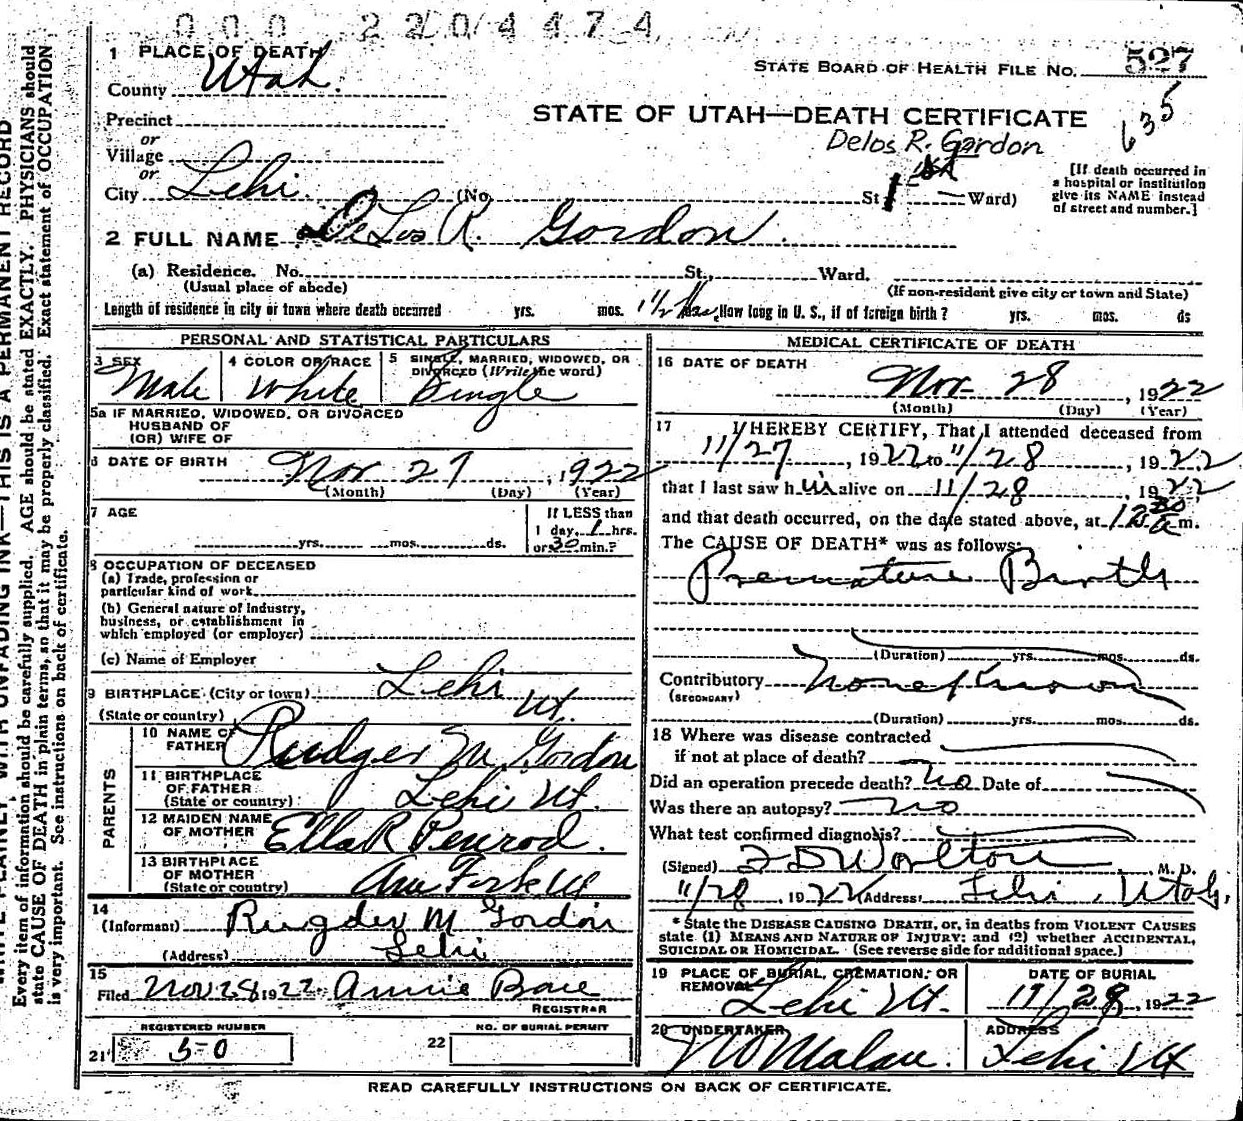 0 0 0 2 2 0 4 4 7 4
1 PLACE OF DEATH
County Utah.
Precinct
or
Village
or
City Lehi. (No. St. Ward)
STATE BOARD OF HEALTH FILE NO. 527
635
STATE OF UTAH—DEATH CERTIFICATE
Delos R. Gordon
[If death occurred in
a hospital or institution
give its NAME instead
of street and number.]
2 FULL NAME DeLos R. Gordon.
(a) Residence. No. St., Ward.
(Usual place of abode) (If non-resident give city or town and State)
Length of residence in city or town where death occurred yrs. mos. 1 1/2 Hrs. How long in U. S., if of foreign birth? yrs. mos. ds
PERSONAL AND STATISTICAL PARTICULARS
3 SEX 4 COLOR OR RACE 5 SINGLE, MARRIED, WIDOWED, OR
DIVORCED (Write the word)
Male White Single
5a IF MARRIED, WIDOWED, OR DIVORCED
HUSBAND OF
(OR) WIFE OF
6 DATE OF BIRTH Nov 27, 1922
(Month) (Day) (Year)
7 AGE If LESS than
yrs. mos. ds. 1 day, 1 hrs.
or 30 min.?
8 OCCUPATION OF DECEASED
(a) Trade, profession or
particular kind of work
(b) General nature of industry,
business, or establishment in
which employed (or employer)
(c) Name of Employer
9 BIRTHPLACE (City or town) Lehi
(State or country) Ut.
PARENTS
10 NAME OF
FATHER Rudger M. Gordon
11 BIRTHPLACE
OF FATHER
(State or country) Lehi Ut.
12 MAIDEN NAME
OF MOTHER Ella R Penrod.
13 BIRTHPLACE
OF MOTHER
(State or country) Am Fork Ut
14
(Informant) Rugder M Gordon
(Address) Lehi
15
Filed Nov 28 1922 Annie Bone
REGISTRAR
REGISTERED NUMBER NO. OF BURIAL PERMIT
21 50 22
MEDICAL CERTIFICATE OF DEATH
16 DATE OF DEATH
Nov. 28, 1922
(Month) (Day) (Year)
17 I HEREBY CERTIFY, That I attended deceased from
11/27, 1922 to 11/28, 1922
that I last saw him alive on 11/28, 1922
and that death occurred, on the date stated above, at 12 30 a m.
The CAUSE OF DEATH* was as follows:
Premature Birth
(Duration) yrs. mos. ds.
Contributory None Known
(SECONDARY)
(Duration) yrs. mos. ds.
18 Where was disease contracted
if not at place of death?
Did an operation precede death? No Date of
Was there an autopsy? No
What test confirmed diagnosis?
(Signed) F D Worlton M. D.
11/28, 1922 (Address) Lehi, Utah.
* State the DISEASE CAUSING DEATH, or, in deaths from VIOLENT CAUSES
state (1) MEANS AND NATURE OF INJURY; and (2) whether ACCIDENTAL,
SUICIDAL OR HOMICIDAL. (See reverse side for additional space.)
19 PLACE OF BURIAL, CREMATION, OR
REMOVAL Lehi Ut.
DATE OF BURIAL
11/28, 1922
20 UNDERTAKER ADDRESS
Malan. Lehi Ut
READ CAREFULLY INSTRUCTIONS ON BACK OF CERTIFICATE.
WRITE PLAINLY, WITH UNFADING INK—THIS IS A PERMANENT RECORD
Every item of information should be carefully supplied. AGE should be stated EXACTLY. PHYSICIANS should
state CAUSE OF DEATH in plain terms, so that it may be properly classified. Exact statement of OCCUPATION
is very important. See instructions on back of certificate.